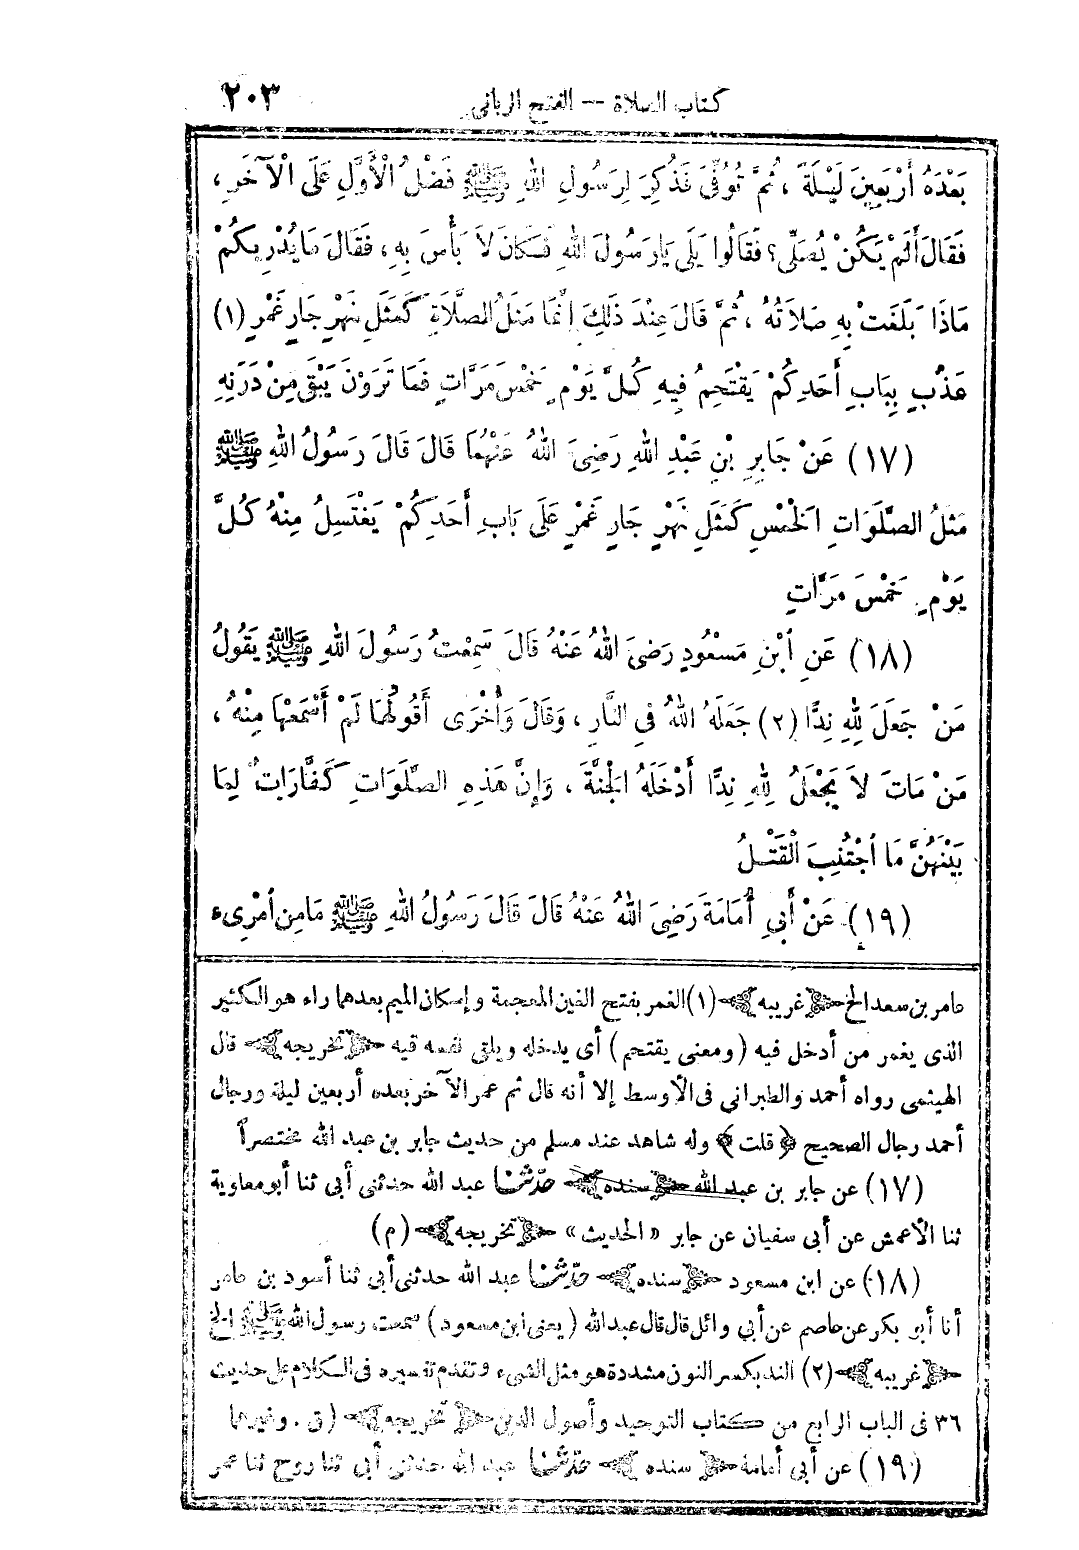 كتاب الصلاة — الفتح الرباني ٢٠٣
بَعْدَهُ أَرْبَعِينَ لَيْلَةً ، ثُمَّ تُوُفِّيَ فَذُكِرَ لِرَسُولِ اللهِ ﷺ فَضْلُ الْأَوَّلِ عَلَى الْآخَرِ ،
فَقَالَ أَلَمْ يَكُنْ يُصَلِّى؟ فَقَالُوا بَلَى يَارَسُولَ اللهِ فَكَانَ لاَ بَأْسَ بِهِ، فَقَالَ مَايُدْرِيكُمْ
مَاذَا بَلَغَتْ بِهِ صَلاَتُهُ ، ثُمَّ قَالَ عِنْدَ ذَلِكَ إِنَّمَا مَثَلُ الصَّلاَةِ كَمَثَلِ نَهْرٍ جَارٍ غَمْرٍ (١)
عَذْبٍ بِبَابِ أَحَدِكُمْ يَقْتَحِمُ فِيهِ كُلَّ يَوْمٍ خَمْسَ مَرَّاتٍ فَمَا تَرَوْنَ يَبْقَى مِنْ دَرَنِهِ
(١٧) عَنْ جَابِرِ بْنِ عَبْدِ اللهِ رَضِيَ اللهُ عَنْهُمَا قَالَ قَالَ رَسُولُ اللهِ ﷺ
مَثَلُ الصَّلَوَاتِ الْخَمْسِ كَمَثَلِ نَهْرٍ جَارٍ غَمْرٍ عَلَى بَابِ أَحَدِكُمْ يَغْتَسِلُ مِنْهُ كُلَّ
يَوْمٍ خَمْسَ مَرَّاتٍ
(١٨) عَنِ ابْنِ مَسْعُودٍ رَضِيَ اللهُ عَنْهُ قَالَ سَمِعْتُ رَسُولَ اللهِ ﷺ يَقُولُ
مَنْ جَعَلَ لِلهِ نِدًّا (٢) جَعَلَهُ اللهُ فِي النَّارِ ، وَقَالَ وَأُخْرَى أَقُولُهَا لَمْ أَسْمَعْهَا مِنْهُ ،
مَنْ مَاتَ لاَ يَجْعَلُ لِلهِ نِدًّا أَدْخَلَهُ الْجَنَّةَ ، وَإِنَّ هَذِهِ الصَّلَوَاتِ كَفَّارَاتٌ لِمَا
بَيْنَهُنَّ مَا اجْتُنِبَ الْقَتْلُ
(١٩) عَنْ أَبِي أُمَامَةَ رَضِيَ اللهُ عَنْهُ قَالَ قَالَ رَسُولُ اللهِ ﷺ مَامِنِ امْرِىءٍ
عامر بن سعد الخ ﴿غريبه﴾ (١) الغمر بفتح الغين المعجمة وإسكان الميم بعدهما راء هو الكثير
الذى يغمر من أدخل فيه (ومعنى يقتحم) أى يدخله ويلقى نفسه فيه ﴿تخريجه﴾ قال
الهيثمى رواه أحمد والطبراني فى الأوسط إلا أنه قال ثم عمر الآخر بعده أربعين ليلة ورجال
أحمد رجال الصحيح ﴿قلت﴾ وله شاهد عند مسلم من حديث جابر بن عبد الله مختصراً
(١٧) عن جابر بن عبد الله ﴿سنده﴾ حدّثنا عبد الله حدثنى أبى ثنا أبو معاوية
ثنا الأعمش عن أبى سفيان عن جابر « الحديث » ﴿تخريجه﴾ (م)
(١٨) عن ابن مسعود ﴿سنده﴾ حدّثنا عبد الله حدثنى أبى ثنا أسود بن عامر
أنا أبو بكر عن عاصم عن أبي وائل قال قال عبدالله (يعنى ابن مسعود) سمعت رسول الله ﷺ الخ
﴿غريبه﴾ (٢) الند بكسر النون مشددة هو مثل الشىء وتقدم تفسيره فى الكلام على حديث
٣٦ فى الباب الرابع من كتاب التوحيد وأصول الدين ﴿تخريجه﴾ (ق . وغيرهما
(١٩) عن أبى أمامة ﴿سنده﴾ حدّثنا عبد الله حدثنى أبى ثنا روح ثنا عمر